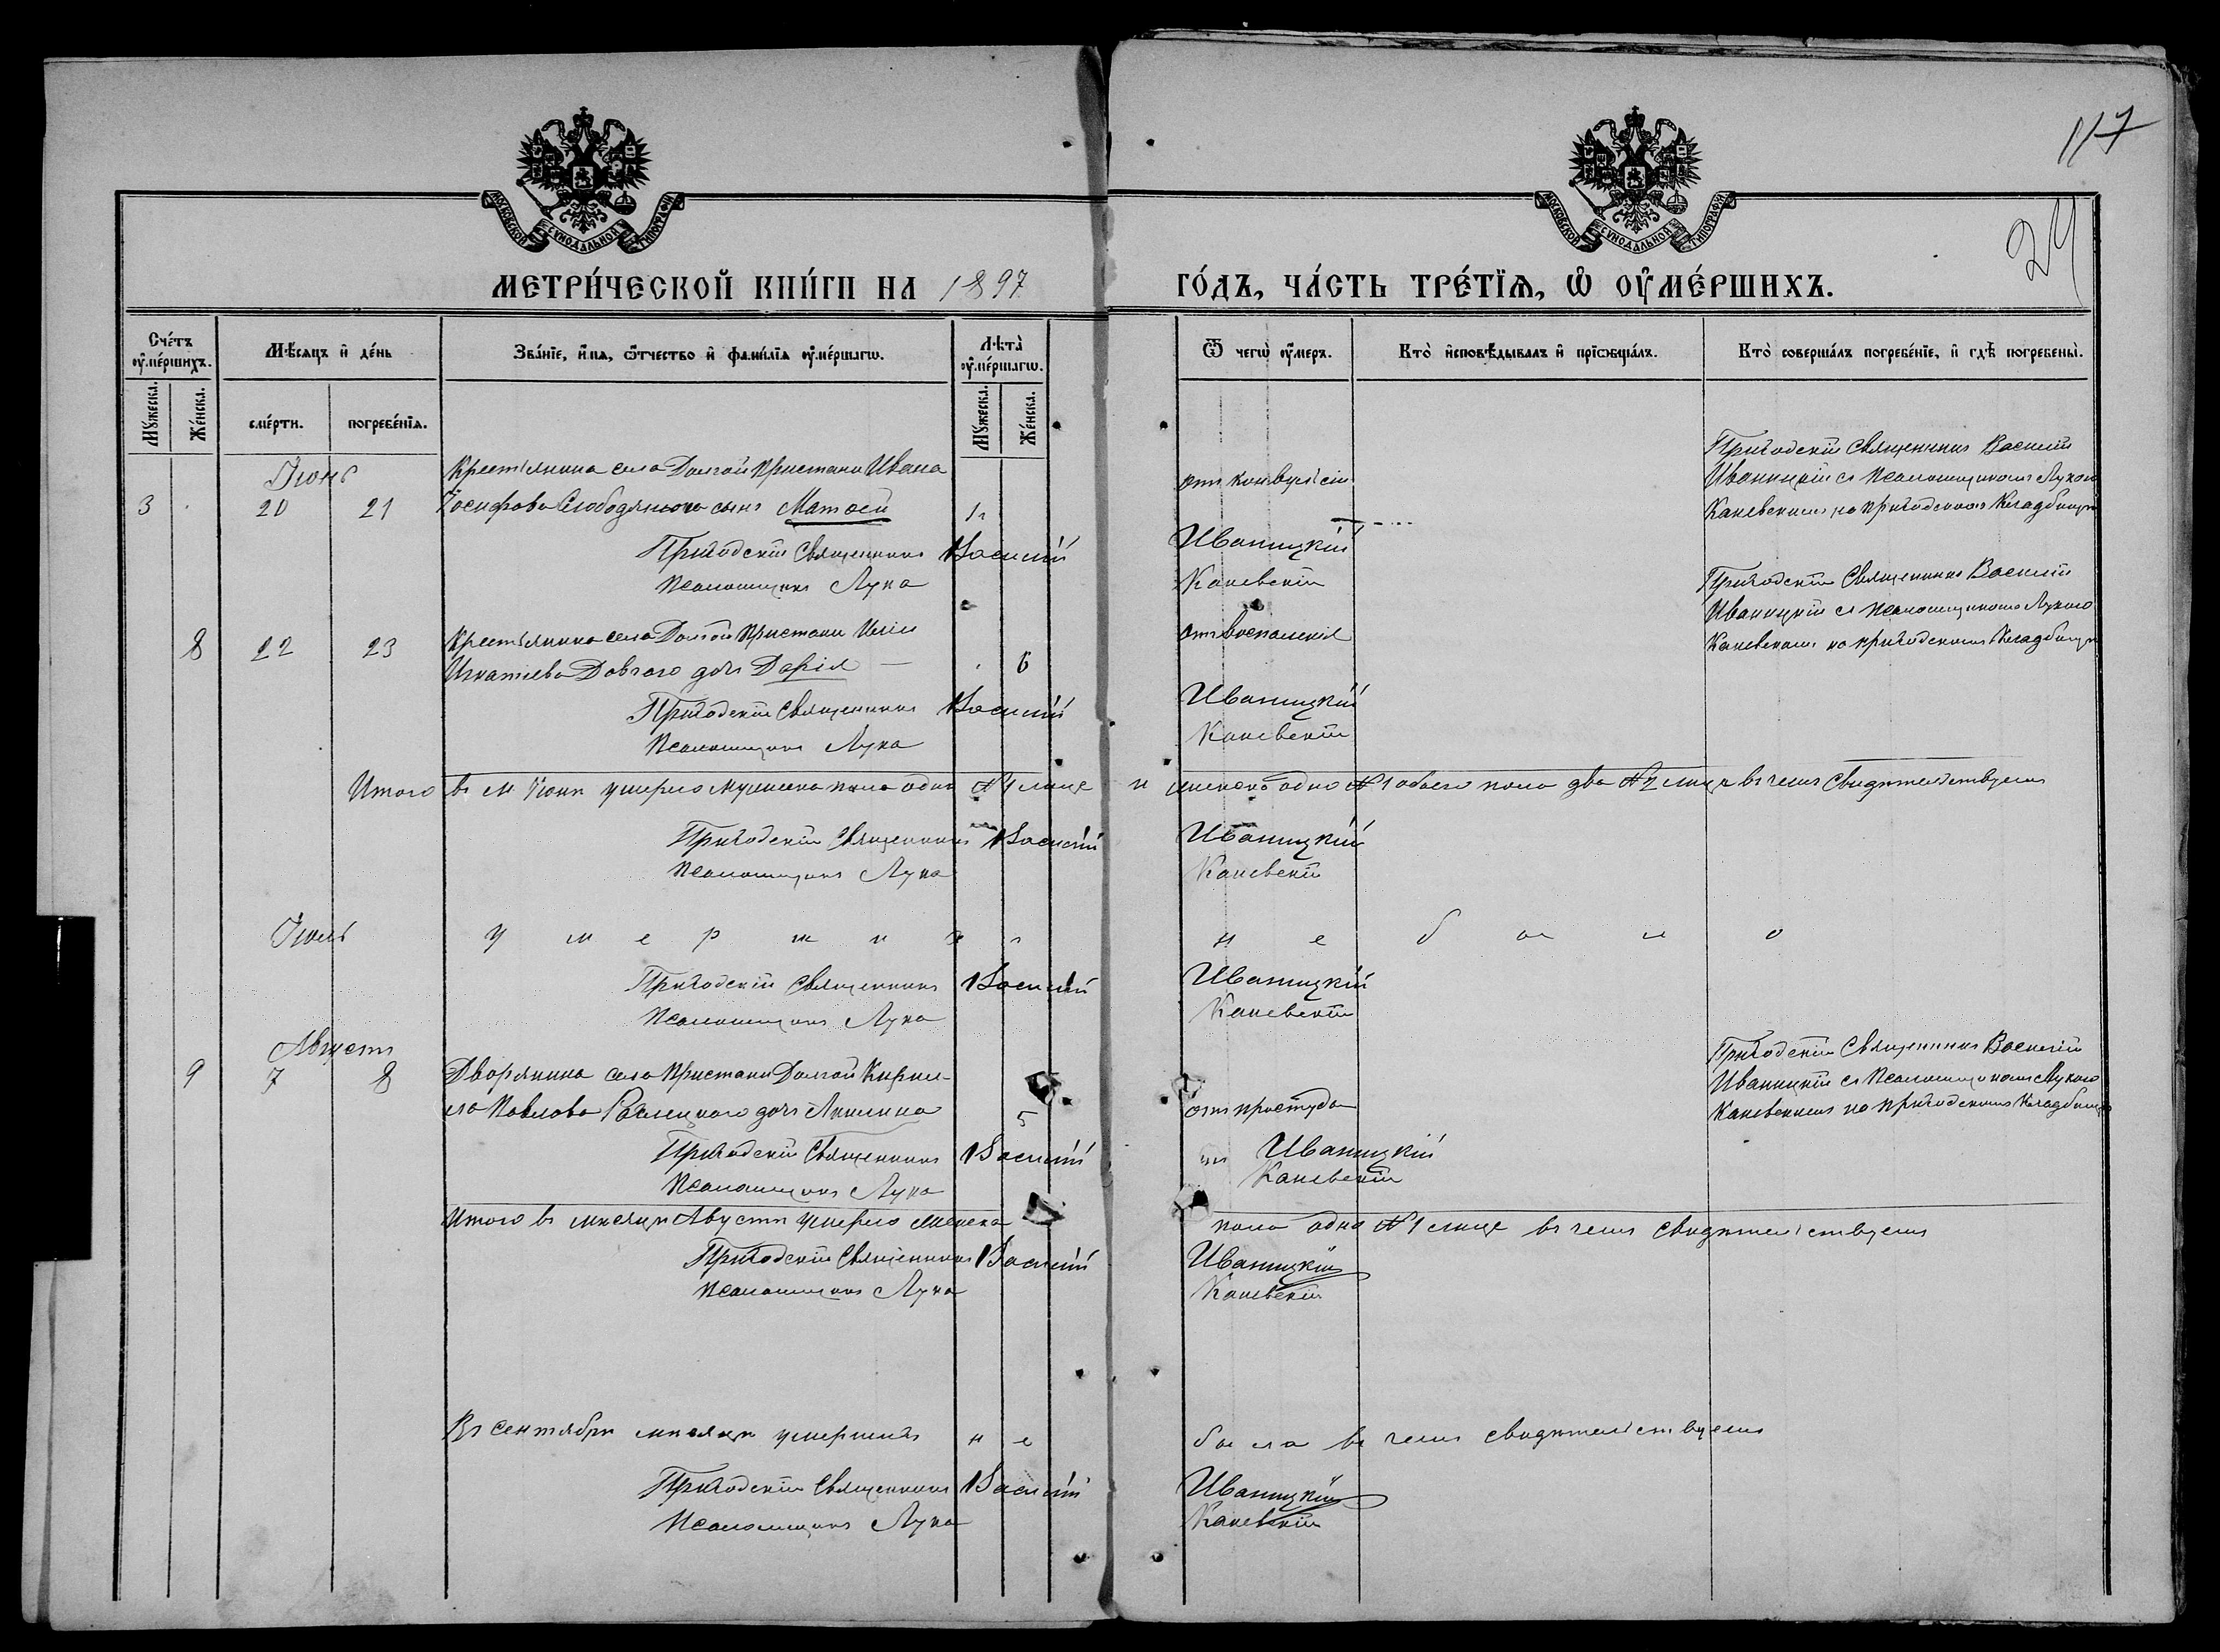 117
24
МОСКОВСКОЙ СѴНОДАЛЬНОЙ ТИПОГРАФІИ
МОСКОВСКОЙ СѴНОДАЛЬНОЙ ТИПОГРАФІИ
МЕТРИ́ЧЕСКОЙ КНИ́ГИ НА 1897 ГО́ДЪ, ЧА́СТЬ ТРЕ́ТЇѦ, Ѡ҆ ОУ҆МЕ́РШИХЪ.
Сче́тъ оу҆ме́ршихъ.
Мѣ́сѧцъ и҆ де́нь
Зва́нїе, и҆́мѧ, ѻ҆́тчество и҆ фами́лїѧ оу҆ме́ршагѡ.
Лѣ́та оу҆ме́ршагѡ.
Ѿ чегѡ̀ оу҆́меръ.
Кто̀ и҆сповѣ́дывалъ и҆ прїѡбща́лъ.
Кто̀ соверша́лъ погребе́нїе, и҆ гдѣ̀ погребены̀.
Му́жеска.
Же́нска.
сме́рти.
погребе́нїѧ.
Му́жеска.
Же́нска.
Іюнь
3 20 21
Крестьянина села Долгой Пристани Ивана
Іосифова Слободянюка сынъ Матѳей
отъ конвульсіи
Приходскій Священникъ Василій
Иваницкій съ Псаломщикомъ Лукою
Каневскимъ на приходскомъ Кладбищѣ
Приходскій Священникъ Василій Иваницкій
Псаломщикъ Лука Каневскій
8 22 23
Крестьянина села Долгой Пристани
Игнатіева Довгаго дочь Дарія — 6
отъ воспаленія
Приходскій Священникъ Василій
Иваницкій съ Псаломщикомъ Лукою
Каневскимъ на приходскомъ Кладбищѣ
Приходскій Священникъ Василій Иваницкій
Псаломщикъ Лука Каневскій
Итого въ м. Іюнѣ умерло мужеска пола одно № 1 лице и женска одно № 1 обоего пола два № 2 лица въ чемъ Свидѣтельствуемъ
Приходскій Священникъ Василій Иваницкій
Псаломщикъ Лука Каневскій
Іюль
умершихъ не было
Приходскій Священникъ Василій Иваницкій
Псаломщикъ Лука Каневскій
Августъ
9 7 8
Дворянина села Пристани Долгой Кирил-
ла Павлова дочь Акилина 5
отъ простуды
Приходскій Священникъ Василій
Иваницкій съ Псаломщикомъ Лукою
Каневскимъ на приходскомъ Кладбищѣ
Приходскій Священникъ Василій Иваницкій
Псаломщикъ Лука Каневскій
Итого въ мѣсяцѣ Августѣ умерло женска пола одно № 1 лице въ чемъ свидѣтельствуемъ
Приходскій Священникъ Василій Иваницкій
Псаломщикъ Лука Каневскій
Въ Сентябрѣ мѣсяцѣ умершихъ не было въ чемъ свидѣтельствуемъ
Приходскій Священникъ Василій Иваницкій
Псаломщикъ Лука Каневскій